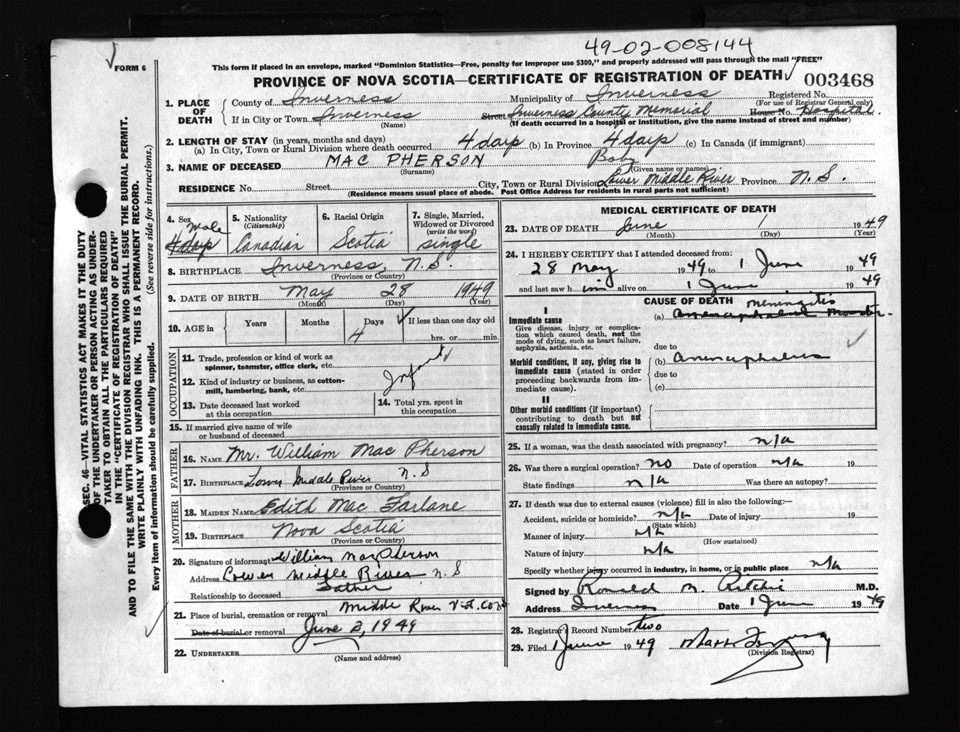 49-02-008144
FORM 6
This form if placed in an envelope, marked "Dominion Statistics—Free, penalty for improper use $300," and properly addressed will pass through the mail "FREE"
PROVINCE OF NOVA SCOTIA—CERTIFICATE OF REGISTRATION OF DEATH 003468
SEC. 46—VITAL STATISTICS ACT MAKES IT THE DUTY
OF THE UNDERTAKER OR PERSON ACTING AS UNDER-
TAKER TO OBTAIN ALL THE PARTICULARS REQUIRED
IN THE "CERTIFICATE OF REGISTRATION OF DEATH"
AND TO FILE THE SAME WITH THE DIVISION REGISTRAR WHO SHALL ISSUE THE BURIAL PERMIT.
WRITE PLAINLY WITH UNFADING INK. THIS IS A PERMANENT RECORD.
Every item of information should be carefully supplied. (See reverse side for instructions.)
1. PLACE OF DEATH
County of Inverness Municipality of Inverness Registered No.
(For use of Registrar General only)
If in City or Town Inverness Street Inverness County Memorial House No Hospital.
(Name) (If death occurred in a hospital or institution, give the name instead of street and number)
2. LENGTH OF STAY (in years, months and days)
(a) In City, Town or Rural Division where death occurred 4 days (b) In Province 4 days (c) In Canada (if immigrant)
3. NAME OF DECEASED MAC PHERSON Baby
(Surname) (Given name or names)
RESIDENCE No. Street City, Town or Rural Division Lower Middle River Province N.S.
(Residence means usual place of abode. Post Office Address for residents in rural parts not sufficient)
4. Sex Male
4 days
5. Nationality (Citizenship) Canadian
6. Racial Origin Scotia
7. Single, Married, Widowed or Divorced (write the word) single
8. BIRTHPLACE Inverness, N.S.
(Province or Country)
9. DATE OF BIRTH May 28 1949
(Month) (Day) (Year)
10. AGE in Years Months Days 4 If less than one day old
hrs. or min.
OCCUPATION
11. Trade, profession or kind of work as spinner, teamster, office clerk, etc.
12. Kind of industry or business, as cotton-mill, lumbering, bank, etc. Infant
13. Date deceased last worked at this occupation
14. Total yrs. spent in this occupation
15. If married give name of wife or husband of deceased
FATHER
16. NAME Mr. William Mac Pherson
17. BIRTHPLACE Lower Middle River N.S
(Province or Country)
MOTHER
18. MAIDEN NAME Edith Mac Farlane
19. BIRTHPLACE Nova Scotia
(Province or Country)
20. Signature of informant William MacPherson
Address Lower Middle River N.S
Relationship to deceased Father
21. Place of burial, cremation or removal Middle River
Date of burial or removal June 2, 1949
22. UNDERTAKER
(Name and address)
MEDICAL CERTIFICATE OF DEATH
23. DATE OF DEATH June 1 1949
(Month) (Day) (Year)
24. I HEREBY CERTIFY that I attended deceased from:
28 May 1949 to 1 June 1949
and last saw him alive on 1 June 1949
CAUSE OF DEATH
I
Immediate cause
Give disease, injury or complication which caused death, not the mode of dying, such as heart failure, asphyxia, asthenia, etc.
(a) meningitis
due to
Morbid conditions, if any, giving rise to immediate cause (stated in order proceeding backwards from immediate cause).
(b) Anencephalus
due to
(c)
II
Other morbid conditions (if important) contributing to death but not causally related to immediate cause.
25. If a woman, was the death associated with pregnancy? n/a
26. Was there a surgical operation? no Date of operation n/a 19
State findings n/a Was there an autopsy?
27. If death was due to external causes (violence) fill in also the following:—
Accident, suicide or homicide? n/a Date of injury 19
(State which)
Manner of injury n/a
(How sustained)
Nature of injury n/a
Specify whether injury occurred in industry, in home, or in public place n/a
Signed by Ronald M. Ritchie M.D.
Address Inverness Date 1 June 1949
28. Registrar's Record Number two
29. Filed 1 June 1949
(Division Registrar)